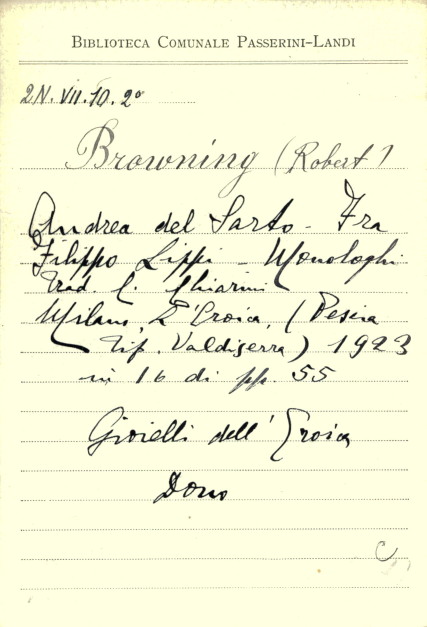 BIBLIOTECA COMUNALE PASSERINI-LANDI
2N.VII.10.2º
Browning (Robert)
Andrea del Sarto - Fra
Filippo Lippi - Monologhi
Trad. C. Chiarini
Milano, L'Eroica, (Pescia
Tip. Valdiserra) 1923
in 16 di pp. 55
Gioielli dell'Eroica
Dono
C